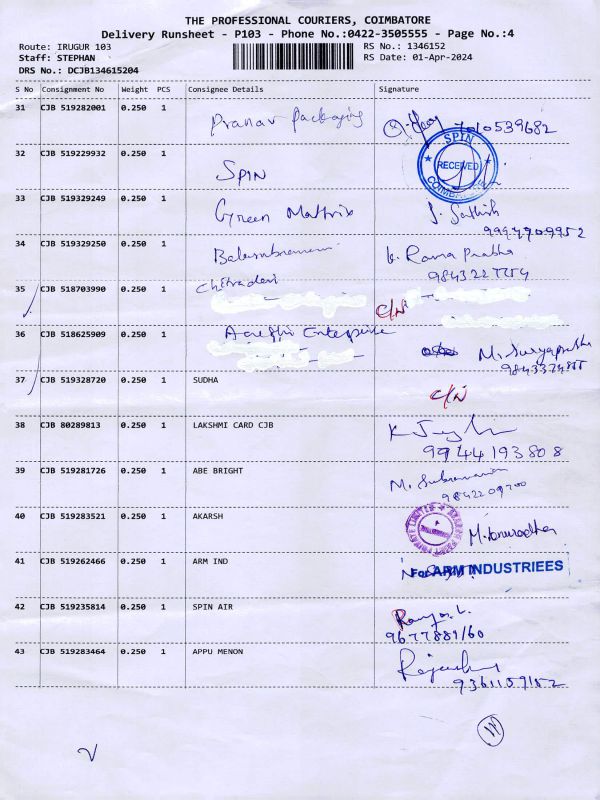 THE PROFESSIONAL COURIERS, COIMBATORE
Delivery Runsheet - P103 - Phone No.:0422-3505555 - Page No.:4
Route: IRUGUR 103
RS No.: 1346152
Staff: STEPHAN
RS Date: 01-Apr-2024
DRS No.: DCJB134615204
S No Consignment No Weight PCS Consignee Details Signature
31 CJB 519282001 0.250 1 Pranav Packaging 7010539682
32 CJB 519229932 0.250 1 SPIN SPIN RECEIVED
33 CJB 519329249 0.250 1 Green Mattrix J. Sathish
9994909952
34 CJB 519329250 0.250 1 Balasubramani K. Rama Prabha
35 CJB 518703990 0.250 1 Chitradevi C/N
36 CJB 518625909 0.250 1 Enterprise M. Suryaprabha
37 CJB 519328720 0.250 1 SUDHA C/N
38 CJB 80289813 0.250 1 LAKSHMI CARD CJB
9944193808
39 CJB 519281726 0.250 1 ABE BRIGHT M. Subramanian
9842209700
40 CJB 519283521 0.250 1 AKARSH M. Anuradha
41 CJB 519262466 0.250 1 ARM IND For ARM INDUSTRIEES
42 CJB 519235814 0.250 1 SPIN AIR
9677889160
43 CJB 519283464 0.250 1 APPU MENON
9361159152